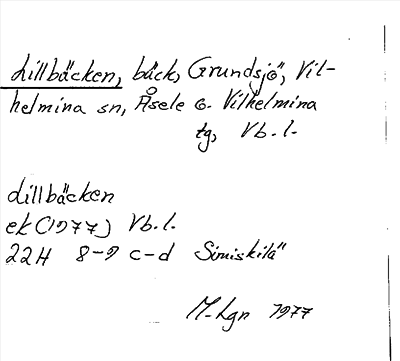 Lillbäcken, bäck, Grundsjö, Vil-
helmina sn, Åsele o. Vilhelmina
tg, Vb. l.
Lillbäcken
ek (1977) Vb. l.
22H 8-9 c-d Simiskilä
M. Lgn 1977